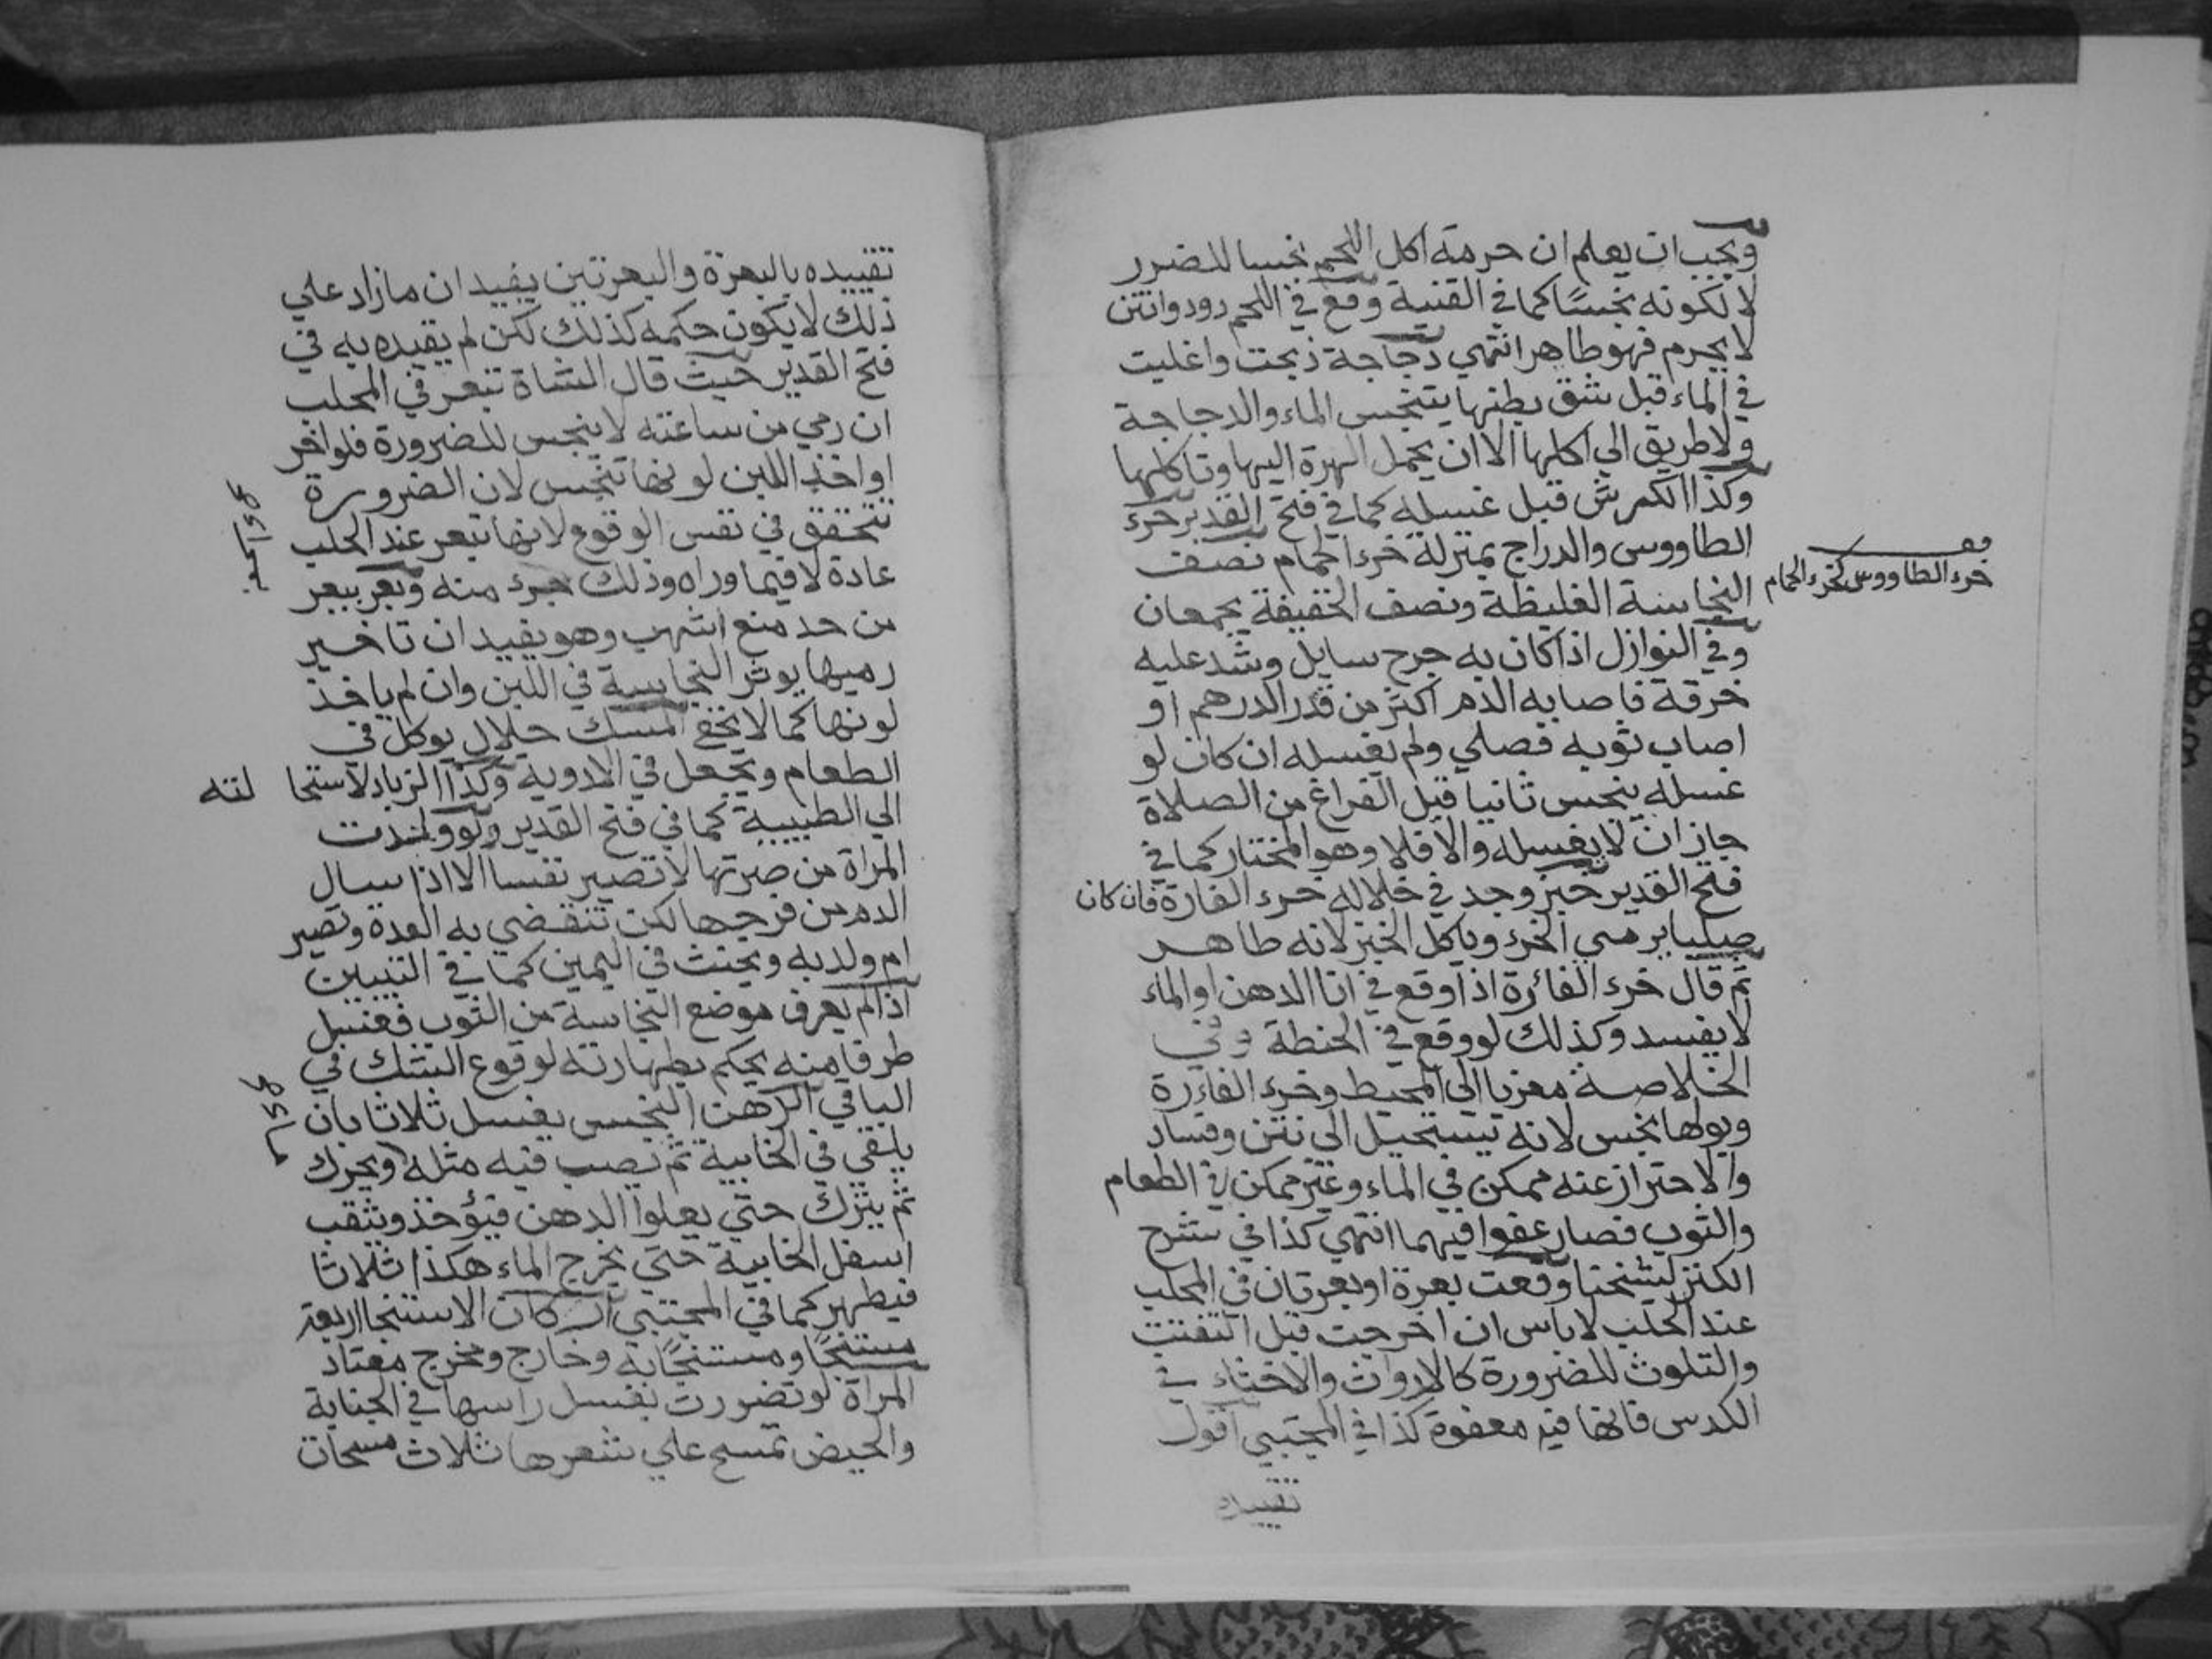 ويجب ان يعلم ان حرمة اكل اللحم نجسا للضرر
لا لكونه نجسًا كما في القنية وقع في اللحم دود وانتن
لا يحرم فهو طاهر انتهي دجاجة ذبحت واغليت
في الماء قبل شق بطنها يتنجس الماء والدجاجة
ولا طريق الي اكلها الا ان يحمل الهرة اليها وتاكلها
وكذا الكرش قبل غسله كما في فتح القدير خرء
الطاووس والدراج بمنزلة خرء الحمام نصف
خرء الطاووس كخرء الحمام
النجاسة الغليظة ونصف الخفيفة يجمعان
وفي النوازل اذا كان به جرح سايل وشد عليه
خرقة فاصابه الدم اكثر من قدر الدرهم او
اصاب ثوبه فصلي ولم يغسله ان كان لو
غسله ينجس ثانيا قبل الفراغ من الصلاة
جاز ان لا يغسله والا فلا وهو المختار كما في
فتح القدير خبز وجد في خلاله خرء الفارة فان كان
صلبا يرمي الخرء وياكل الخبز لانه طاهر
ثم قال خرء الفائرة اذا وقع في انا الدهن او الماء
لا يفسد وكذلك لو وقع في الحنطة وفي
الخلاصة معزيا الي المحيط وخرء الفارة
وبولها نجس لانه يستحيل الي نتن وفساد
والاحتراز عنه ممكن في الماء وغير ممكن في الطعام
والثوب فصار عفوا فيهما انتهي كذا في شرح
الكنز لشيخنا وقعت بعرة او بعرتان في المحلب
عند الحلب لا باس ان اخرجت قبل التفتت
والتلوث للضرورة كالارواث والاخثاء في
الكدس فانها فيه معفوة كذا في المجتبي اقول
تقييده
تقييده بالبعرة والبعرتين يفيد ان ما زاد علي
ذلك لا يكون حكمه كذلك لكن لم يقيده به في
فتح القدير حيث قال الشاة تبعر في المحلب
ان رمي من ساعته لا ينجس للضرورة فلو اخر
او اخذ اللبن لونها تنجس لان الضرورة
تتحقق في نفس الوقوع لانها تبعر عند الحلب
عادة لا فيما وراه وذلك بمرء منه وبعر يبعر
من حد منع انتهي وهو يفيد ان تاخير
رميها يوثر النجاسة في اللبن وان لم ياخذ
لونها كما لا يخفي المسك حلال يوكل في
الطعام ويجعل في الادوية وكذا الزباد لاستحا لته
الي الطيبية كما في فتح القدير ولو ولدت
المراة من صرتها لا تصير نفسا الا اذا سال
الدم من فرجها لكن تنقضي به العدة وتصير
ام ولد به ويحنث في اليمين كما في التبيين
اذا لم يعرف موضع النجاسة من الثوب فغسل
طرفا منه يحكم بطهارته لوقوع الشك في
الباقي الدهن النجس يغسل ثلاثا بان
يلقي في الخابية ثم يصب فيه مثله ويحرك
ثم يترك حتي يعلوا الدهن فيؤخذ ويثقب
اسفل الخابية حتي يخرج الماء هكذا ثلاثا
فيطهر كما في المجتبي اركان الاستنجا اربعة
مستنجًا ومستنجًا به وخارج ومخرج معتاد
المراة لو تضررت بغسل راسها في الجنابة
والحيض تمسح علي شعرها ثلاث مسحات